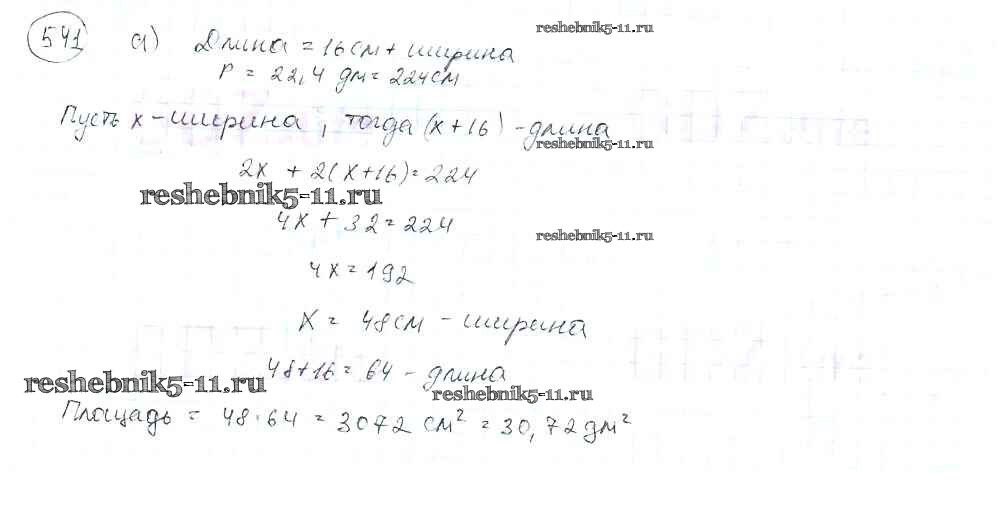 541 а) Длина = 16 см + ширина
reshebnik5-11.ru
P = 22,4 дм = 224 см
Пусть x - ширина, тогда (x+16) - длина
reshebnik5-11.ru
2x + 2(x+16) = 224
reshebnik5-11.ru
4x + 32 = 224
reshebnik5-11.ru
4x = 192
x = 48 см - ширина
48+16 = 64 - длина
reshebnik5-11.ru
reshebnik5-11.ru
Площадь = 48·64 = 3072 см² = 30,72 дм²